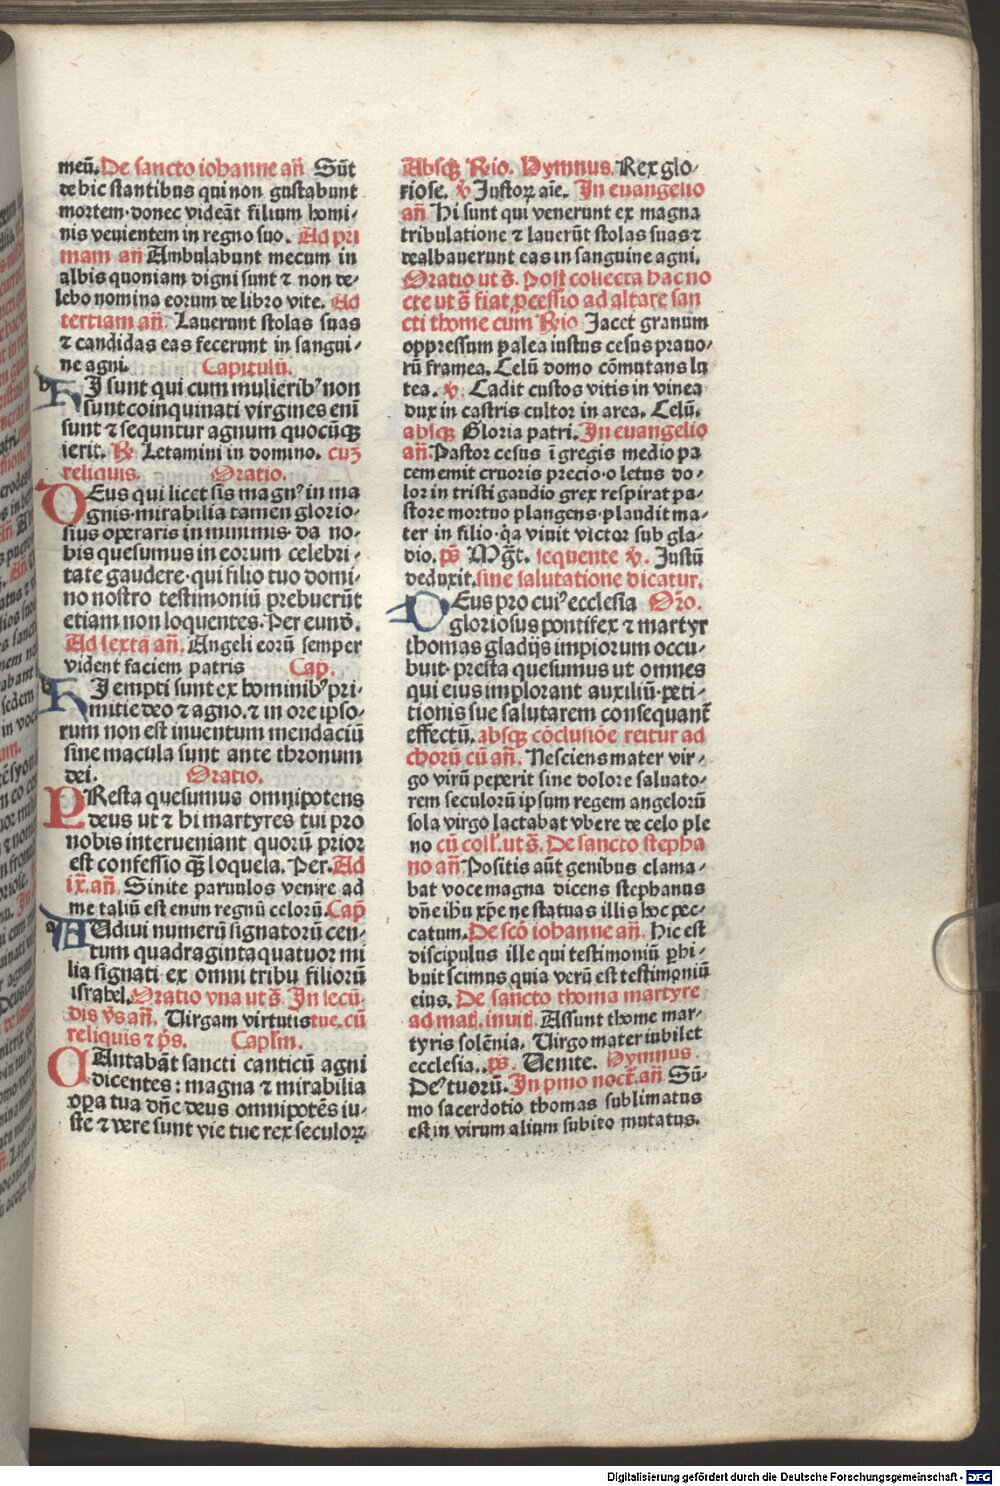 meū. De sancto iohanne an̄ Sūt
de hic stantibus qui non gustabunt
mortem·donec videāt filium homi⸗
nis venientem in regno suo. Ad pri
mam an̄ Ambulabunt mecum in
albis quoniam digni sunt ⁊ non de⸗
lebo nomina eorum de libro vite. Ad
tertiam an̄. Lauerunt stolas suas
⁊ candidas eas fecerunt in sangui⸗
ne agni. Capitulū.
HI sunt qui cum mulierib⁹ non
sunt coinquinati virgines enī
sunt ⁊ sequntur agnum quocūqꝫ
ierit. ℟ Letamini in domino. cuꝫ
reliquis. Oratio.
DEus qui licet sis magn⁹ in ma
gnis·mirabilia tamen glorio⸗
sius operaris in minimis·da no⸗
bis quesumus in eorum celebri⸗
tate gaudere·qui filio tuo domi⸗
no nostro testimoniū prebuerūt
etiam non loquentes. Per eunđ.
Ad sextā an̄. Angeli eorū semper
vident faciem patris Cap.
HI empti sunt ex hominib⁹ pri⸗
mitie deo ⁊ agno.⁊ in ore ipso⸗
rum non est inuentum mendaciū
sine macula sunt ante thronum
dei. Oratio.
PResta quesumus omnipotens
deus ut ⁊ hi martyres tui pro
nobis interueniant quorū prior
est confessio qꝫ loquela. Per. Ad
ix. an̄. Sinite paruulos venire ad
me taliū est enun regnū celorū. Cap̄
AUdiui numerū signatorū cen⸗
tum quadraginta quatuor mi
lia signati ex omni tribu filiorū
israhel. Oratio vna ut s̄. In secū
dis v̄s an̄. Uirgam virtutis tue. cū
reliquis ⁊ p̄s. Caplm̄.
CAntabāt sancti canticū agni
dicentes: magna ⁊ mirabilia
oꝑa tua dn̄e deus omnipotēs iu⸗
ste ⁊ vere sunt vie tue rex seculoꝝ
Absqꝫ Rio. Hymnus. Rex glo⸗
riose. ℣ Iustoꝝ aīe. In euangelio
an̄ Hi sunt qui venerunt ex magna
tribulatione ⁊ lauerūt stolas suas ⁊
dealbauerunt eas in sanguine agni.
Oratio ut s̄. Post collecta hac no
cte ut s̄ fiat ꝓcessio ad altare san
cti thome cum Rio Iacet granum
oppressum palea iustus cesus prauo⸗
rū framea. Celū domo cōmutans lu
tea. ℣. Cadit custos vitis in vinea
dux in castris cultor in area. Celū.
absqꝫ Gloria patri. In euangelio
an̄. Pastor cesus ī gregis medio pa
cem emit cruoris precio·o letus do⸗
lor in tristi gaudio grex respirat pa⸗
store mortuo plangens·plaudit ma⸗
ter in filio·q̇a viuit victor sub gla⸗
dio. p̄s Mg̅t. sequente ℣. Iustū
deduxit. sine salutatione dicatur.
DEus pro cui⁹ ecclesia Or̄o.
gloriosus pontifex ⁊ martyr
thomas gladijs impiorum occu⸗
buit·presta quesumus ut omnes
qui eius implorant auxiliū·peti⸗
tionis sue salutarem consequant̄
effectū. absqꝫ cōclusiōe reitur ad
chorū cū an̄. Nesciens mater vir⸗
go virū peperit sine dolore saluato⸗
rem seculorū ipsum regem angelorū
sola virgo lactabat vbere de celo ple
no cū coll. ut s̄. De sancto stepha
no an̄ Positis aūt genibus clama⸗
bat voce magna dicens stephanus
dn̄e ihu xp̄e ne statuas illis hoc pec⸗
catum. De scō iohanne an̄. Hic est
discipulus ille qui testimoniū ꝑhi⸗
buit scimus quia verū est testimoniū
eius. De sancto thoma martyre
ad mat. inuit. Assunt thome mar⸗
tyris solēnia. Uirgo mater iubilet
ecclesia.. p̄s. Uenite. Hymnus.
De⁹ tuorū. In pmo noct̄. an̄ Sū⸗
mo sacerdotio thomas sublimatus
est in virum alium subito mutatus.
Digitalisierung gefördert durch die Deutsche Forschungsgemeinschaft - DFG